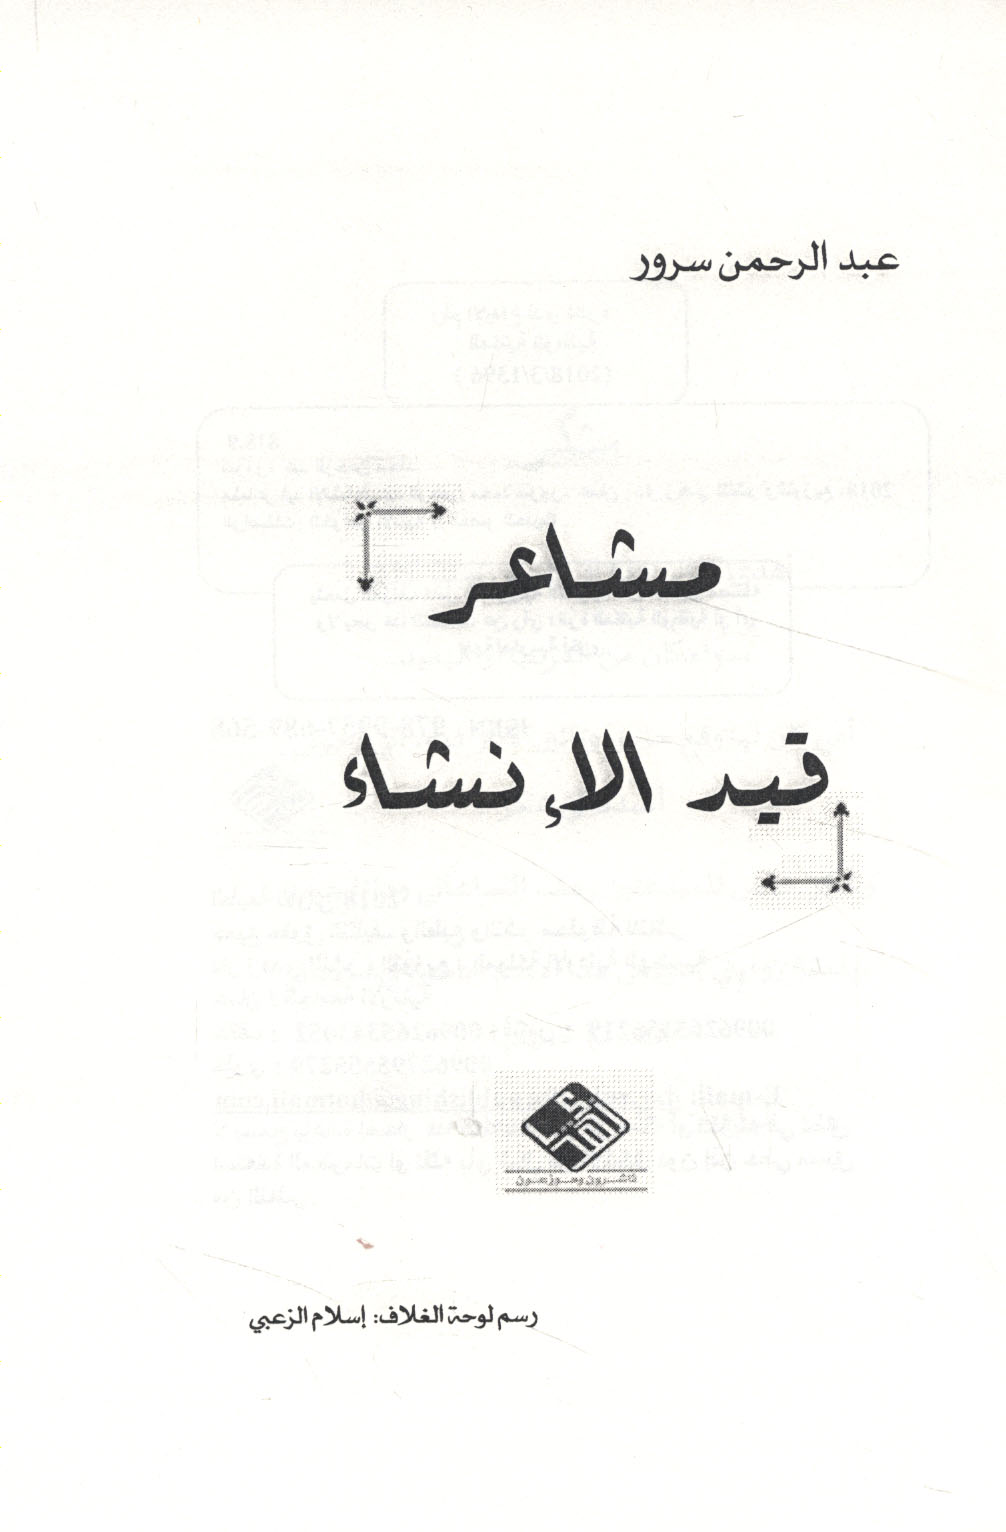 عبد الرحمن سرور
مشاعر
قيد الإنشاء
ناشرون وموزعون
رسم لوحة الغلاف: إسلام الزعبي